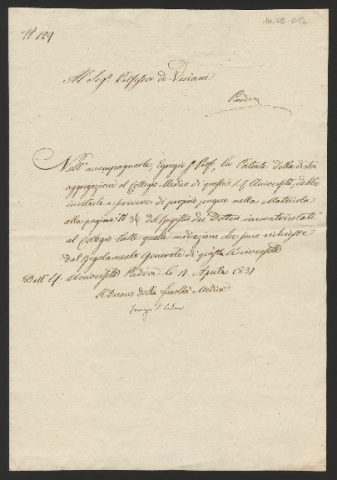 N 129
Al Sigr Professor de Visiani
Padova
Nell' accompagnarle, Egregio Sr Prof, la Patente della di Lei
aggregazione al Collegio Medico di questa Università, debbo
invitarla a scrivere di proprio pugno nella Matricola
alla pagina N 34 del Registro dei Dottori
al Collegio tutte quelle indicazioni che sono richieste
dal Regolamento Generale di questa Università
Dall' Università Padova li Aprile 1837
Il Decano della Facoltà Medica